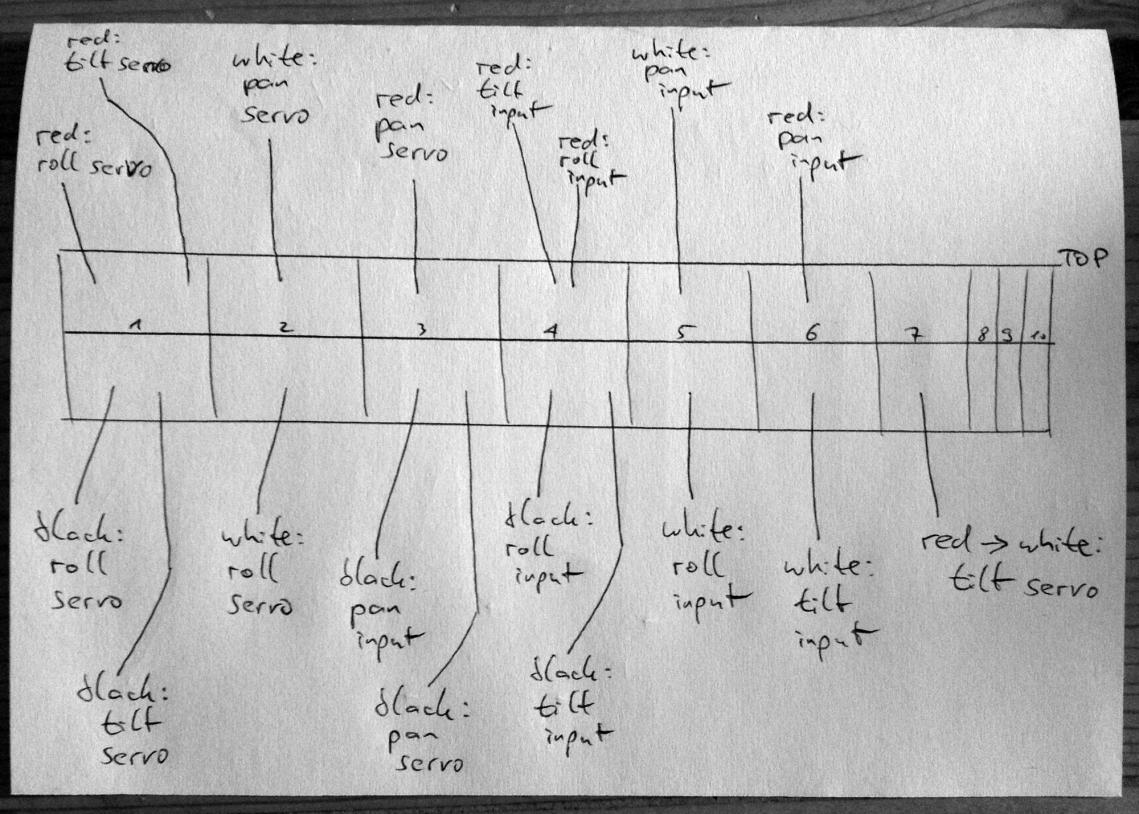 red:
tilt servo
red:
roll servo
white:
pan
servo
red:
pan
servo
red:
tilt
input
red:
roll
input
white:
pan
input
red:
pan
input
TOP
1 2 3 4 5 6 7 8 9 10
black:
roll
servo
black:
tilt
servo
white:
roll
servo
black:
pan
input
black:
pan
servo
black:
roll
input
black:
tilt
input
white:
roll
input
white:
tilt
input
red → white:
tilt servo